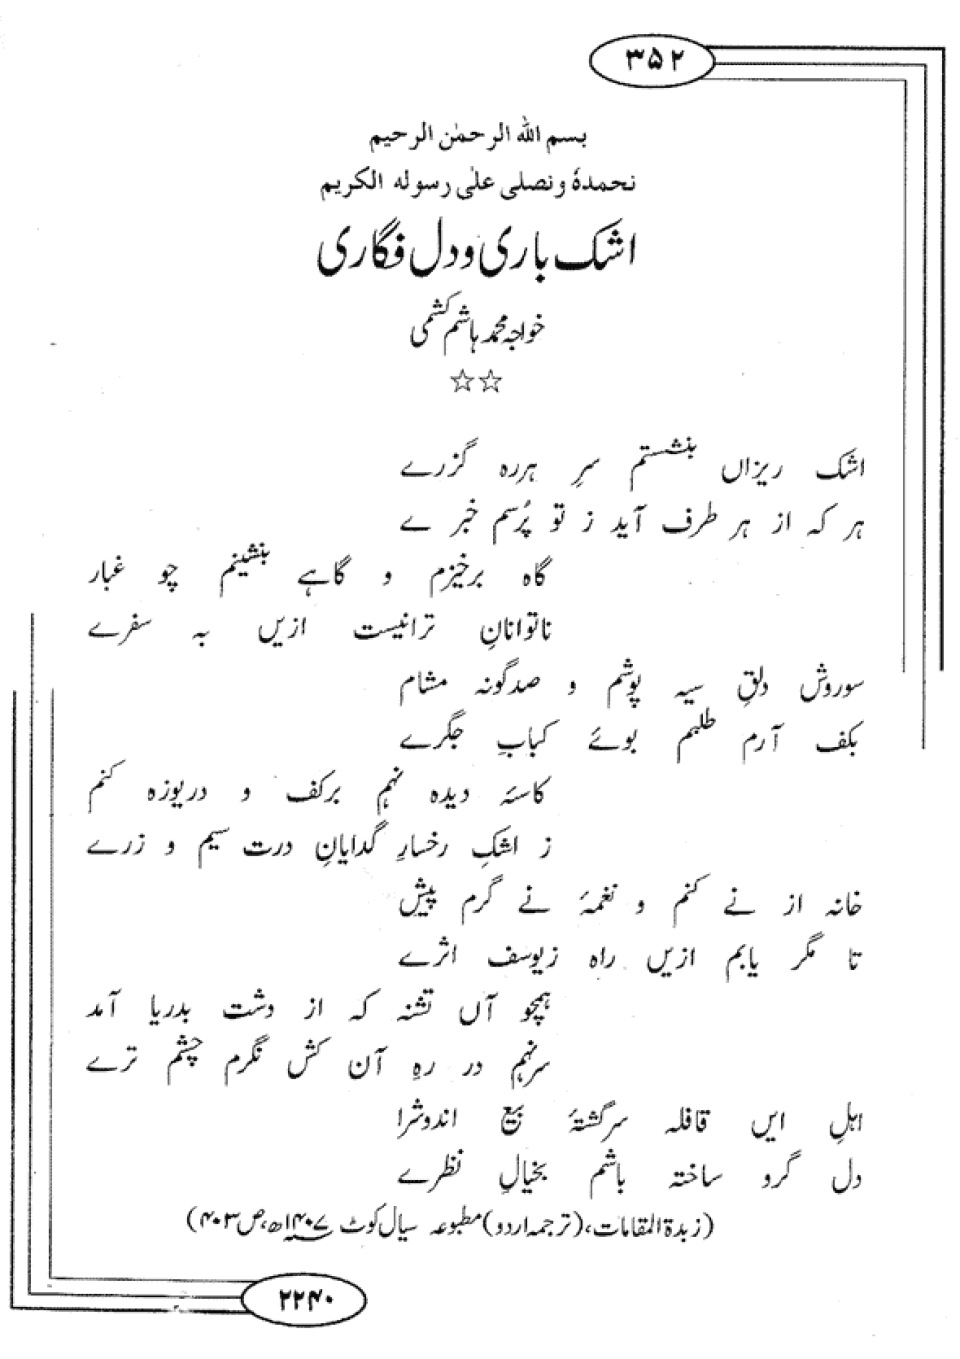 ۳۵۲
بسم الله الرحمٰن الرحيم
نحمدهٗ ونصلى علىٰ رسوله الكريم
اشک باری و دل فگاری
خواجہ محمد ہاشم کشمی
☆☆
اشک ریزاں بنشستم سرِ ہررہ گزرے
ہر کہ از ہر طرف آید ز تو پُرسم خبر ے
گاہ برخیزم و گاہے بنشینم چو غبار
ناتوانانِ ترانیست ازیں بہ سفرے
سوروش دلقِ سیہ پوشم و صدگونہ مشام
بکف آرم طلبم بوئے کبابِ جگرے
کاسۂ دیدہ نہم برکف و دریوزہ کنم
ز اشکِ رخسارِ گدایانِ درت سیم و زرے
خانہ از نے کنم و نغمۂ نے گرم پیش
تا مگر یابم ازیں راہ زیوسف اثرے
ہمچو آں تشنہ کہ از دشت بدریا آمد
سرنہم در رہِ آن کش نگرم چشم ترے
اہلِ ایں قافلہ سرگشتۂ بیع اندوشرا
دل گرو ساختہ باشم بخیالِ نظرے
(زبدۃ المقامات، (ترجمہ اردو) مطبوعہ سیال کوٹ ۱۴۰۷ھ، ص ۴۰۳)
۲۲۴۰